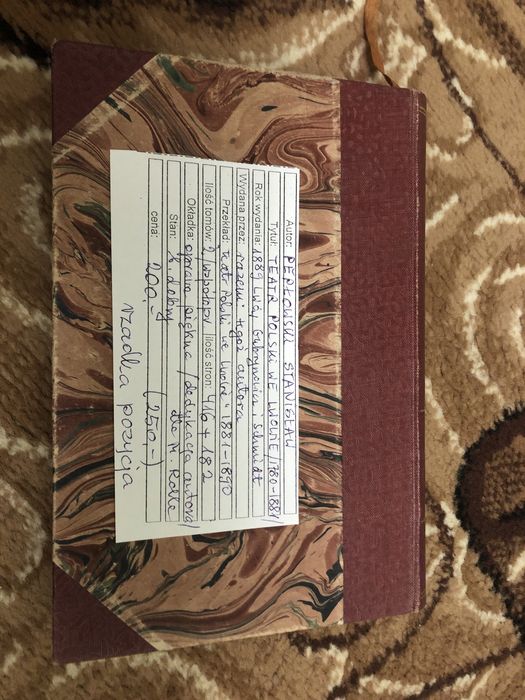 Autor: PEPŁOWSKI STANISŁAW
Tytuł: TEATR POLSKI WE LWOWIE /1780-1881/
Rok wydania: 1889 Lwów, Gubrynowicz i Schmidt
Wydana przez: razem: tegoż autora
Przekład: Teatr Polski we Lwowie" 1881-1890
Ilość tomów: 2 /współopr/ Ilość stron: 416 + 182
Okładka: oprawa piękna /dedykacja autora/
Stan: b. dobry dla M. Rolle
cena: 200,- (250,-)
rzadka pozycja